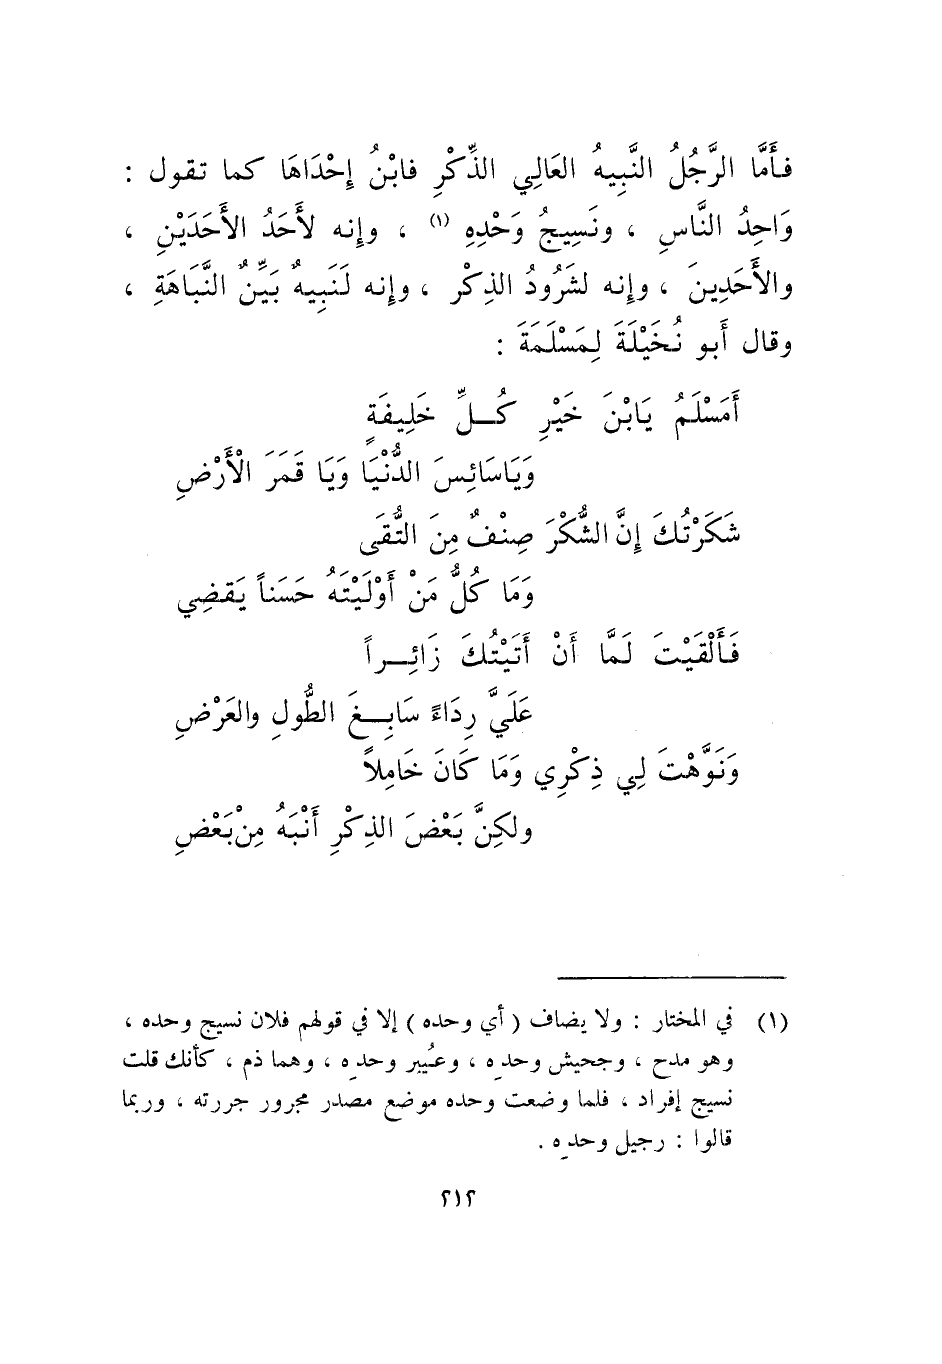 فَأَمَّا الرَّجُلُ النَّبِيهُ العَالِي الذِّكْرِ فابْنُ إِحْدَاهَا كما تقول :
وَاحِدُ النَّاسِ ، ونَسِيجُ وَحْدِهِ (١) ، وإنه لأَحَدُ الأَحَدَيْنِ ،
والأَحَدِينَ ، وإنه لشَرُودُ الذِكْر ، وإنه لَنَبِيهٌ بَيِّنُ النَّبَاهَةِ ،
وقال أَبو نُخَيْلَةَ لِمَسْلَمَةَ :
أَمَسْلَمُ يَابْنَ خَيْرِ كُــلِّ خَلِيفَةٍ
وَيَاسَائِسَ الدُّنْيَا وَيَا قَمَرَ الْأَرْضِ
شَكَرْتُكَ إِنَّ الشُّكْرَ صِنْفٌ مِنَ التُّقَى
وَمَا كُلُّ مَنْ أَوْلَيْتَهُ حَسَناً يَقضِي
فَأَلْقَيْتَ لَمَّا أَنْ أَتَيْتُكَ زَائِــراً
عَلَيَّ رِدَاءً سَابِــغَ الطُّولِ والعَرْضِ
وَنَوَّهْتَ لِي ذِكْرِي وَمَا كَانَ خَامِلاً
ولكِنَّ بَعْضَ الذِكْرِ أَنْبَهُ مِنْ بَعْضِ
(١) في المختار : ولا يضاف ( أي وحده ) إلا في قولهم فلان نسيج وحده ،
وهو مدح ، وجحيش وحدِه ، وعُيير وحدِه ، وهما ذم ، كأنك قلت
نسيج إفراد ، فلما وضعت وحده موضع مصدر مجرور جررته ، وربما
قالوا : رجيل وحدِه .
٢١٢